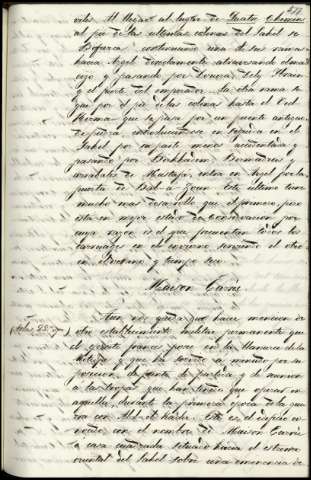 vides. Al llegar al lugar de Quatre Chemins
al pie de las ultimas colinas del Sahel se
bifurca continuando una de sus ramas
hacia Argel directamente atravesando el
y pasando por Douera, Dely Ibrahim
y el fuerte del emperador. La otra rama si-
gue por el pie de las colinas hasta el Oued
Kerma que se pasa por un puente antiguo
de piedra, introduciendose en seguida en el
Sahel por su parte menos accidentada y
pasando por Birkhadem, Birmadreis y
arrabales de Mustafa, entra en Argel por la
puerta de Bab-a-Zoun. Este ultimo tiene
mucho mas desarrollo que el primero, pero
esta en mejor estado de conservacion por
cuya razon es el que frecuentan todos los
carruages en el invierno sirviendo el otro
en verano y tiempo seco.
Maison Carrée
Aun nos queda que hacer mencion de
otro establecimiento militar permanente que
el ejercito frances posee en la llanura de la
Metidja y que ha servido a menudo por su
posicion de punto de partida y de
a las tropas que han tenido que operar en
aquella durante la primera epoca de la gue-
rra con Abd-el-Kader. Este es el edificio co-
nocido con el nombre de Maison Carrée
o casa cuadrada situado hacia el estremo
oriental del Sahel sobre una eminencia de